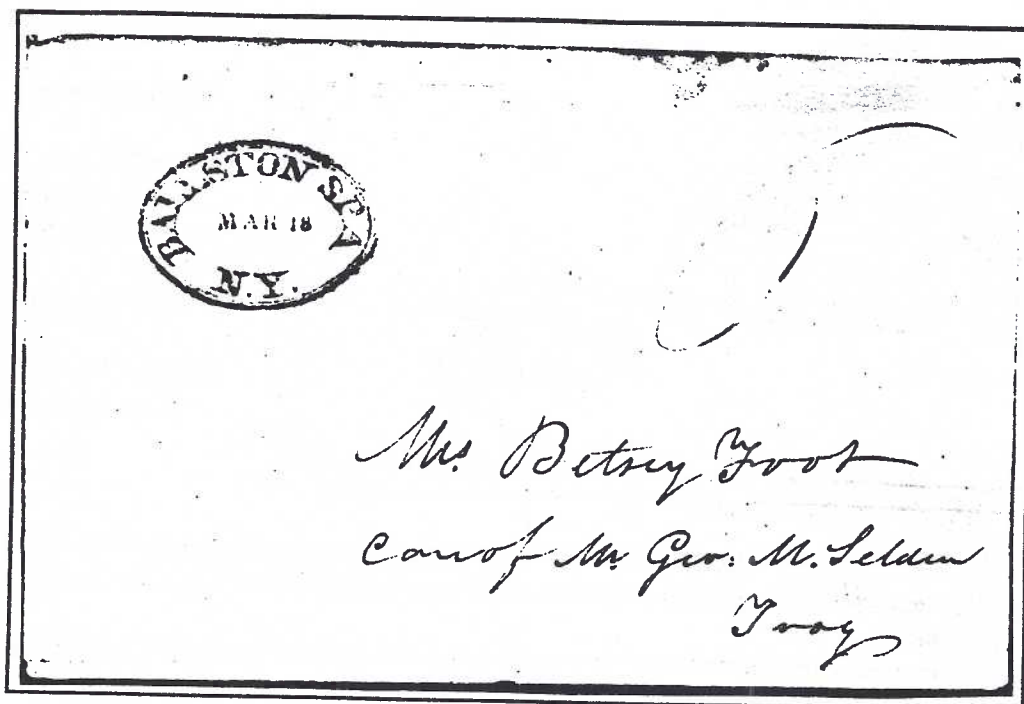 BALLSTON SPA
MAR 18
N.Y.
Mrs. Betsey Foot
Care of Mr. Geo: M. Selden
Troy